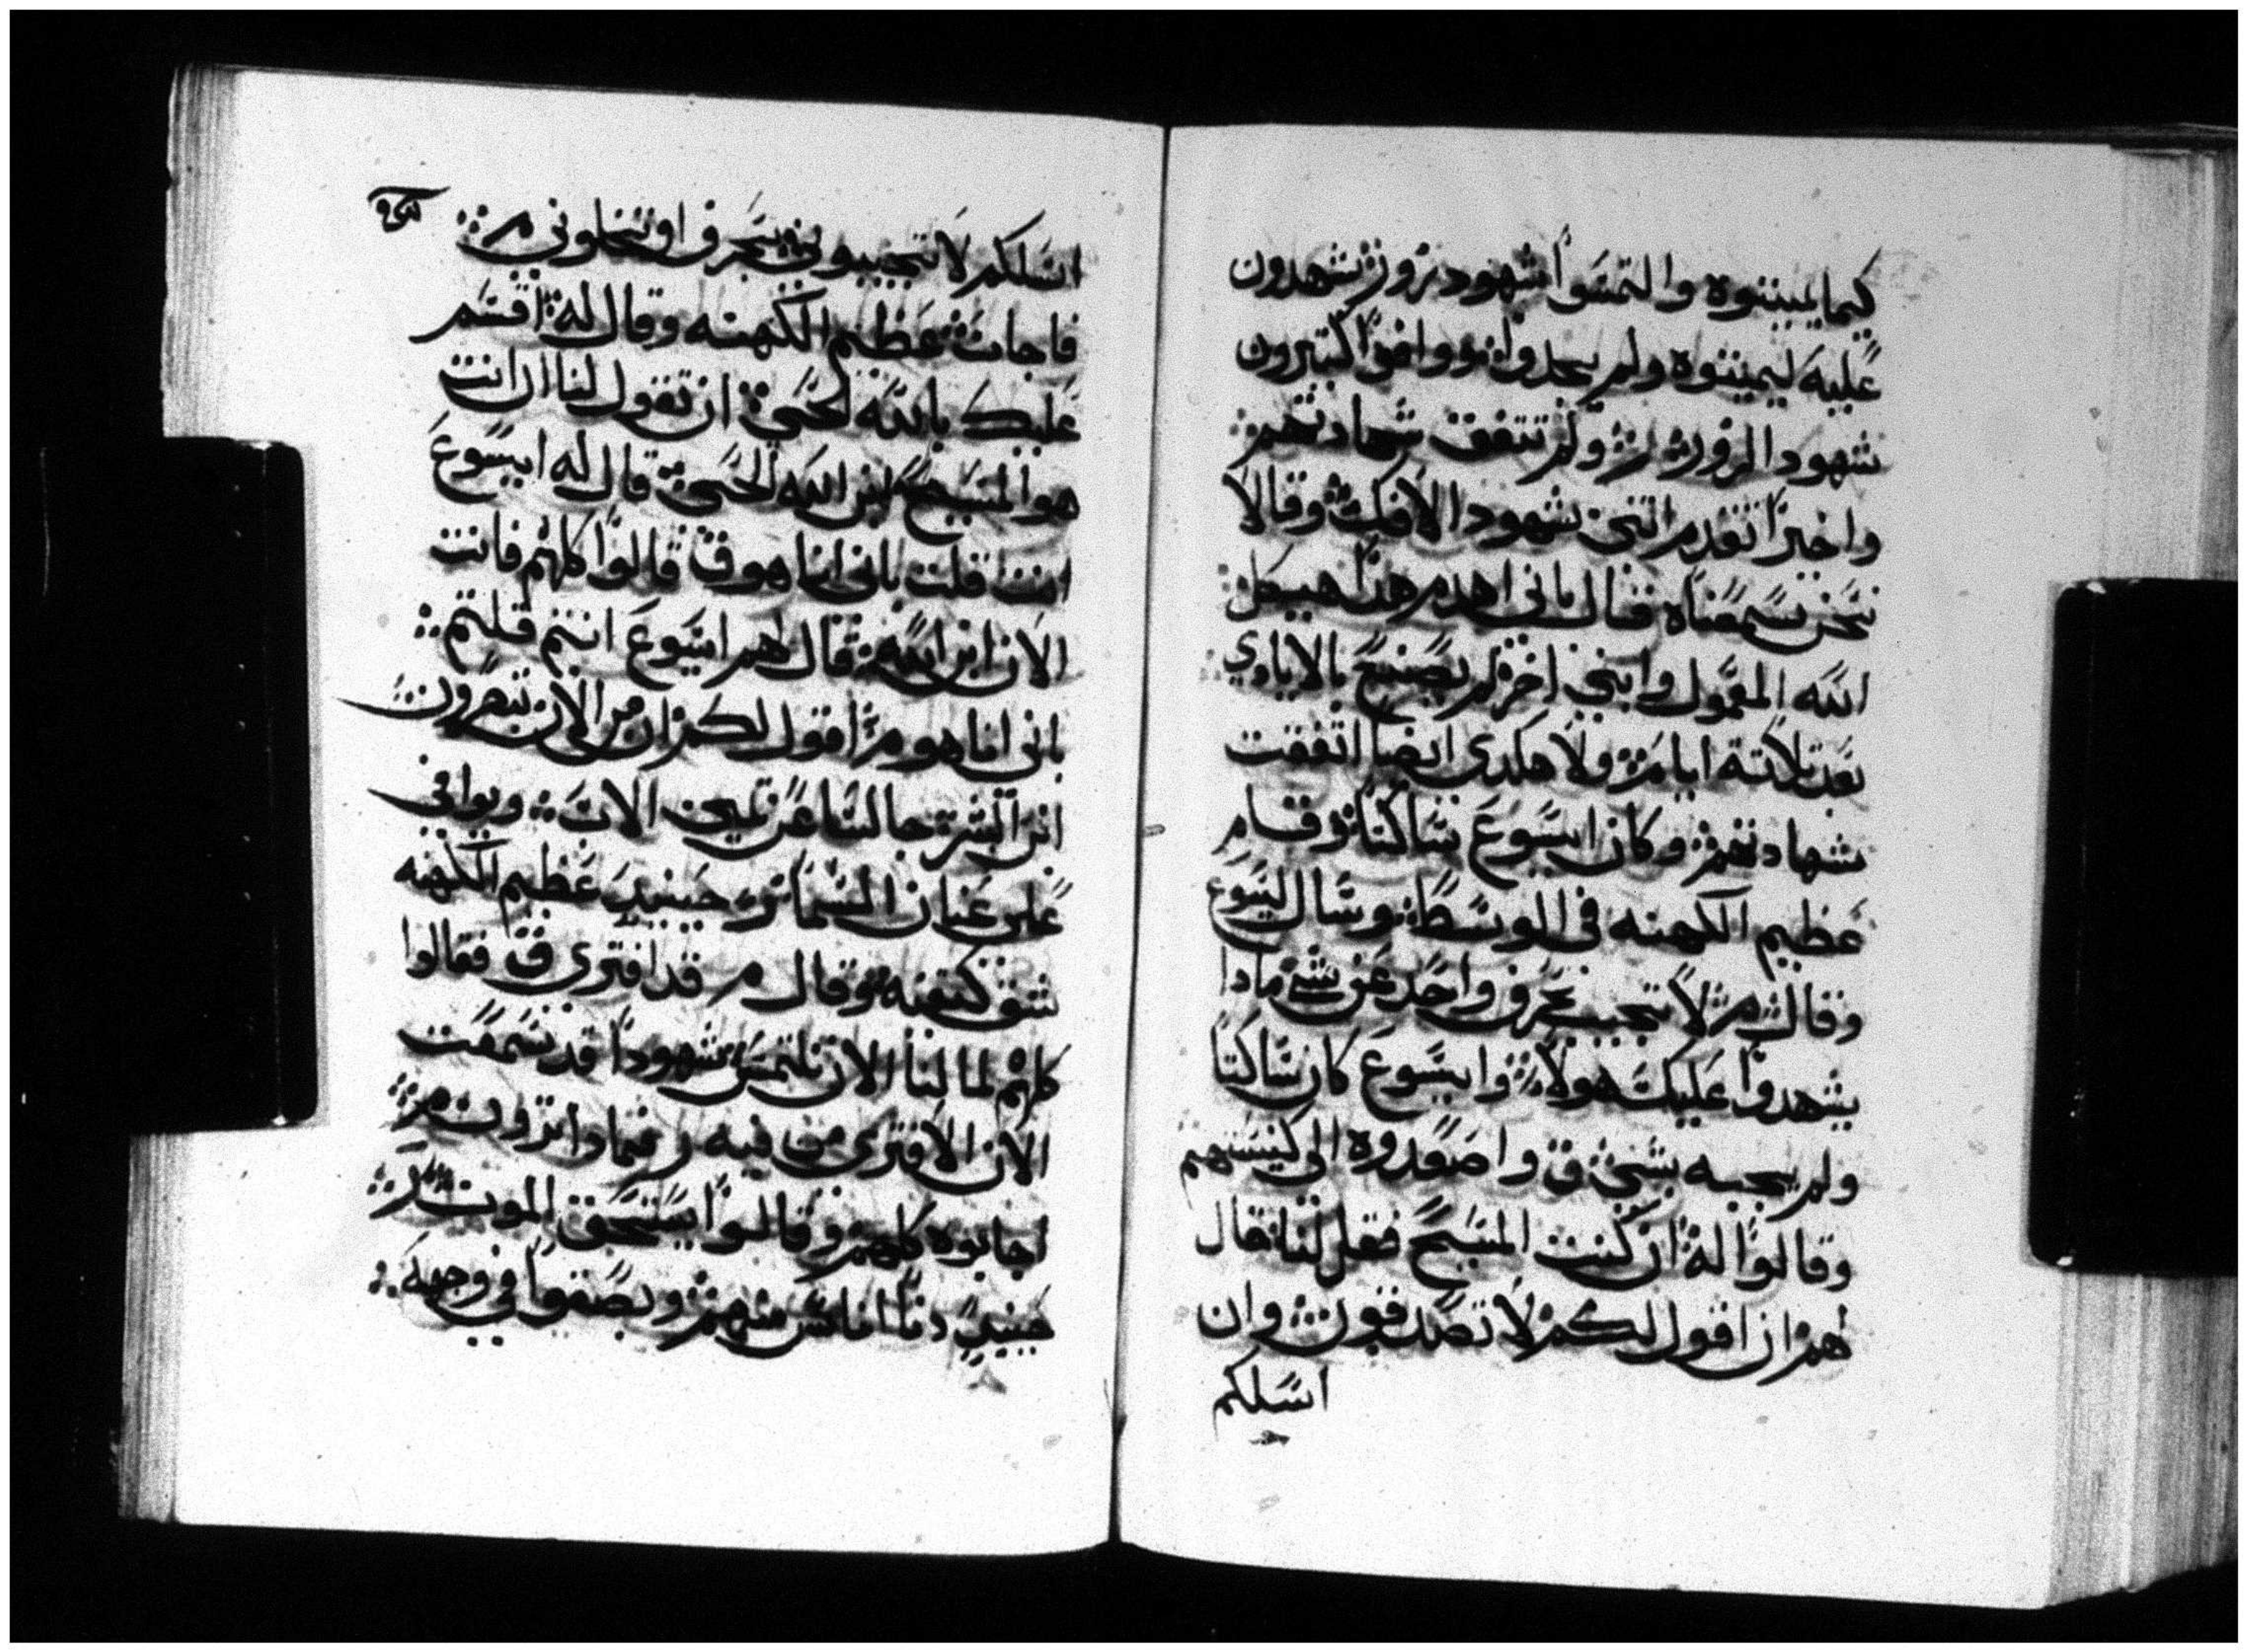 كيما يميتوه والتمسوا شهود زور يشهدون
عليه ليميتوه ولم يجدوا ووافوا كتيرون
شهود الزور ولم تتفق شهادتهم
واخيرا تقدم اتنين شهود الافك وقالا
نحن سمعناه قال باني اهدم هذا هيكل
الله المعمول وابني اخر لم يصنع بالايادي
بعد تلاتة ايام ولا هكدى ايضا اتفقت
شهادتهم وكان ايسوع ساكتا وقام
عظيم الكهنه في الوسط وسال ليسوع
وقال م لا تجيب بحرف واحد عن شي مادا
يشهدوا عليك هولا وايسوع كان ساكتا
ولم يجيبه بشي ق واصعدوه الى كنيستهم
وقالوا له ان كنت المسيح فقل لنا قال
لهم ان اقول لكم لا تصدقون وان
اسلكم
اسلكم لا تجيبوني بحرف او تخلوني م
فاجاب عظيم الكهنه وقال له اقسم
عليك بالله الحي ان تقول لنا ان انت
هو المسيح ابن الله الحي قال له ايسوع
انت قلت باني انا هو ق قالوا كلهم فانت
الان ابن الله قال لهم ايسوع انتم قلتم
باني انا هو م اقول لكم ان من الان تبصرون
ابن البشر جالسا عن يمين الات ويوافي
على عنان السما حينيد عظيم الكهنه
شق كتفنه وقال م قد افترى ق فقالوا
كلهم لما لنا الان نلتمس شهودا قد سمعت
الان الافترى من فيه ر فمادا ترون م
اجابوه كلهم وقالوا يستحق الموت ر
حينيد دنا اناس منهم وبصقوا في وجهه